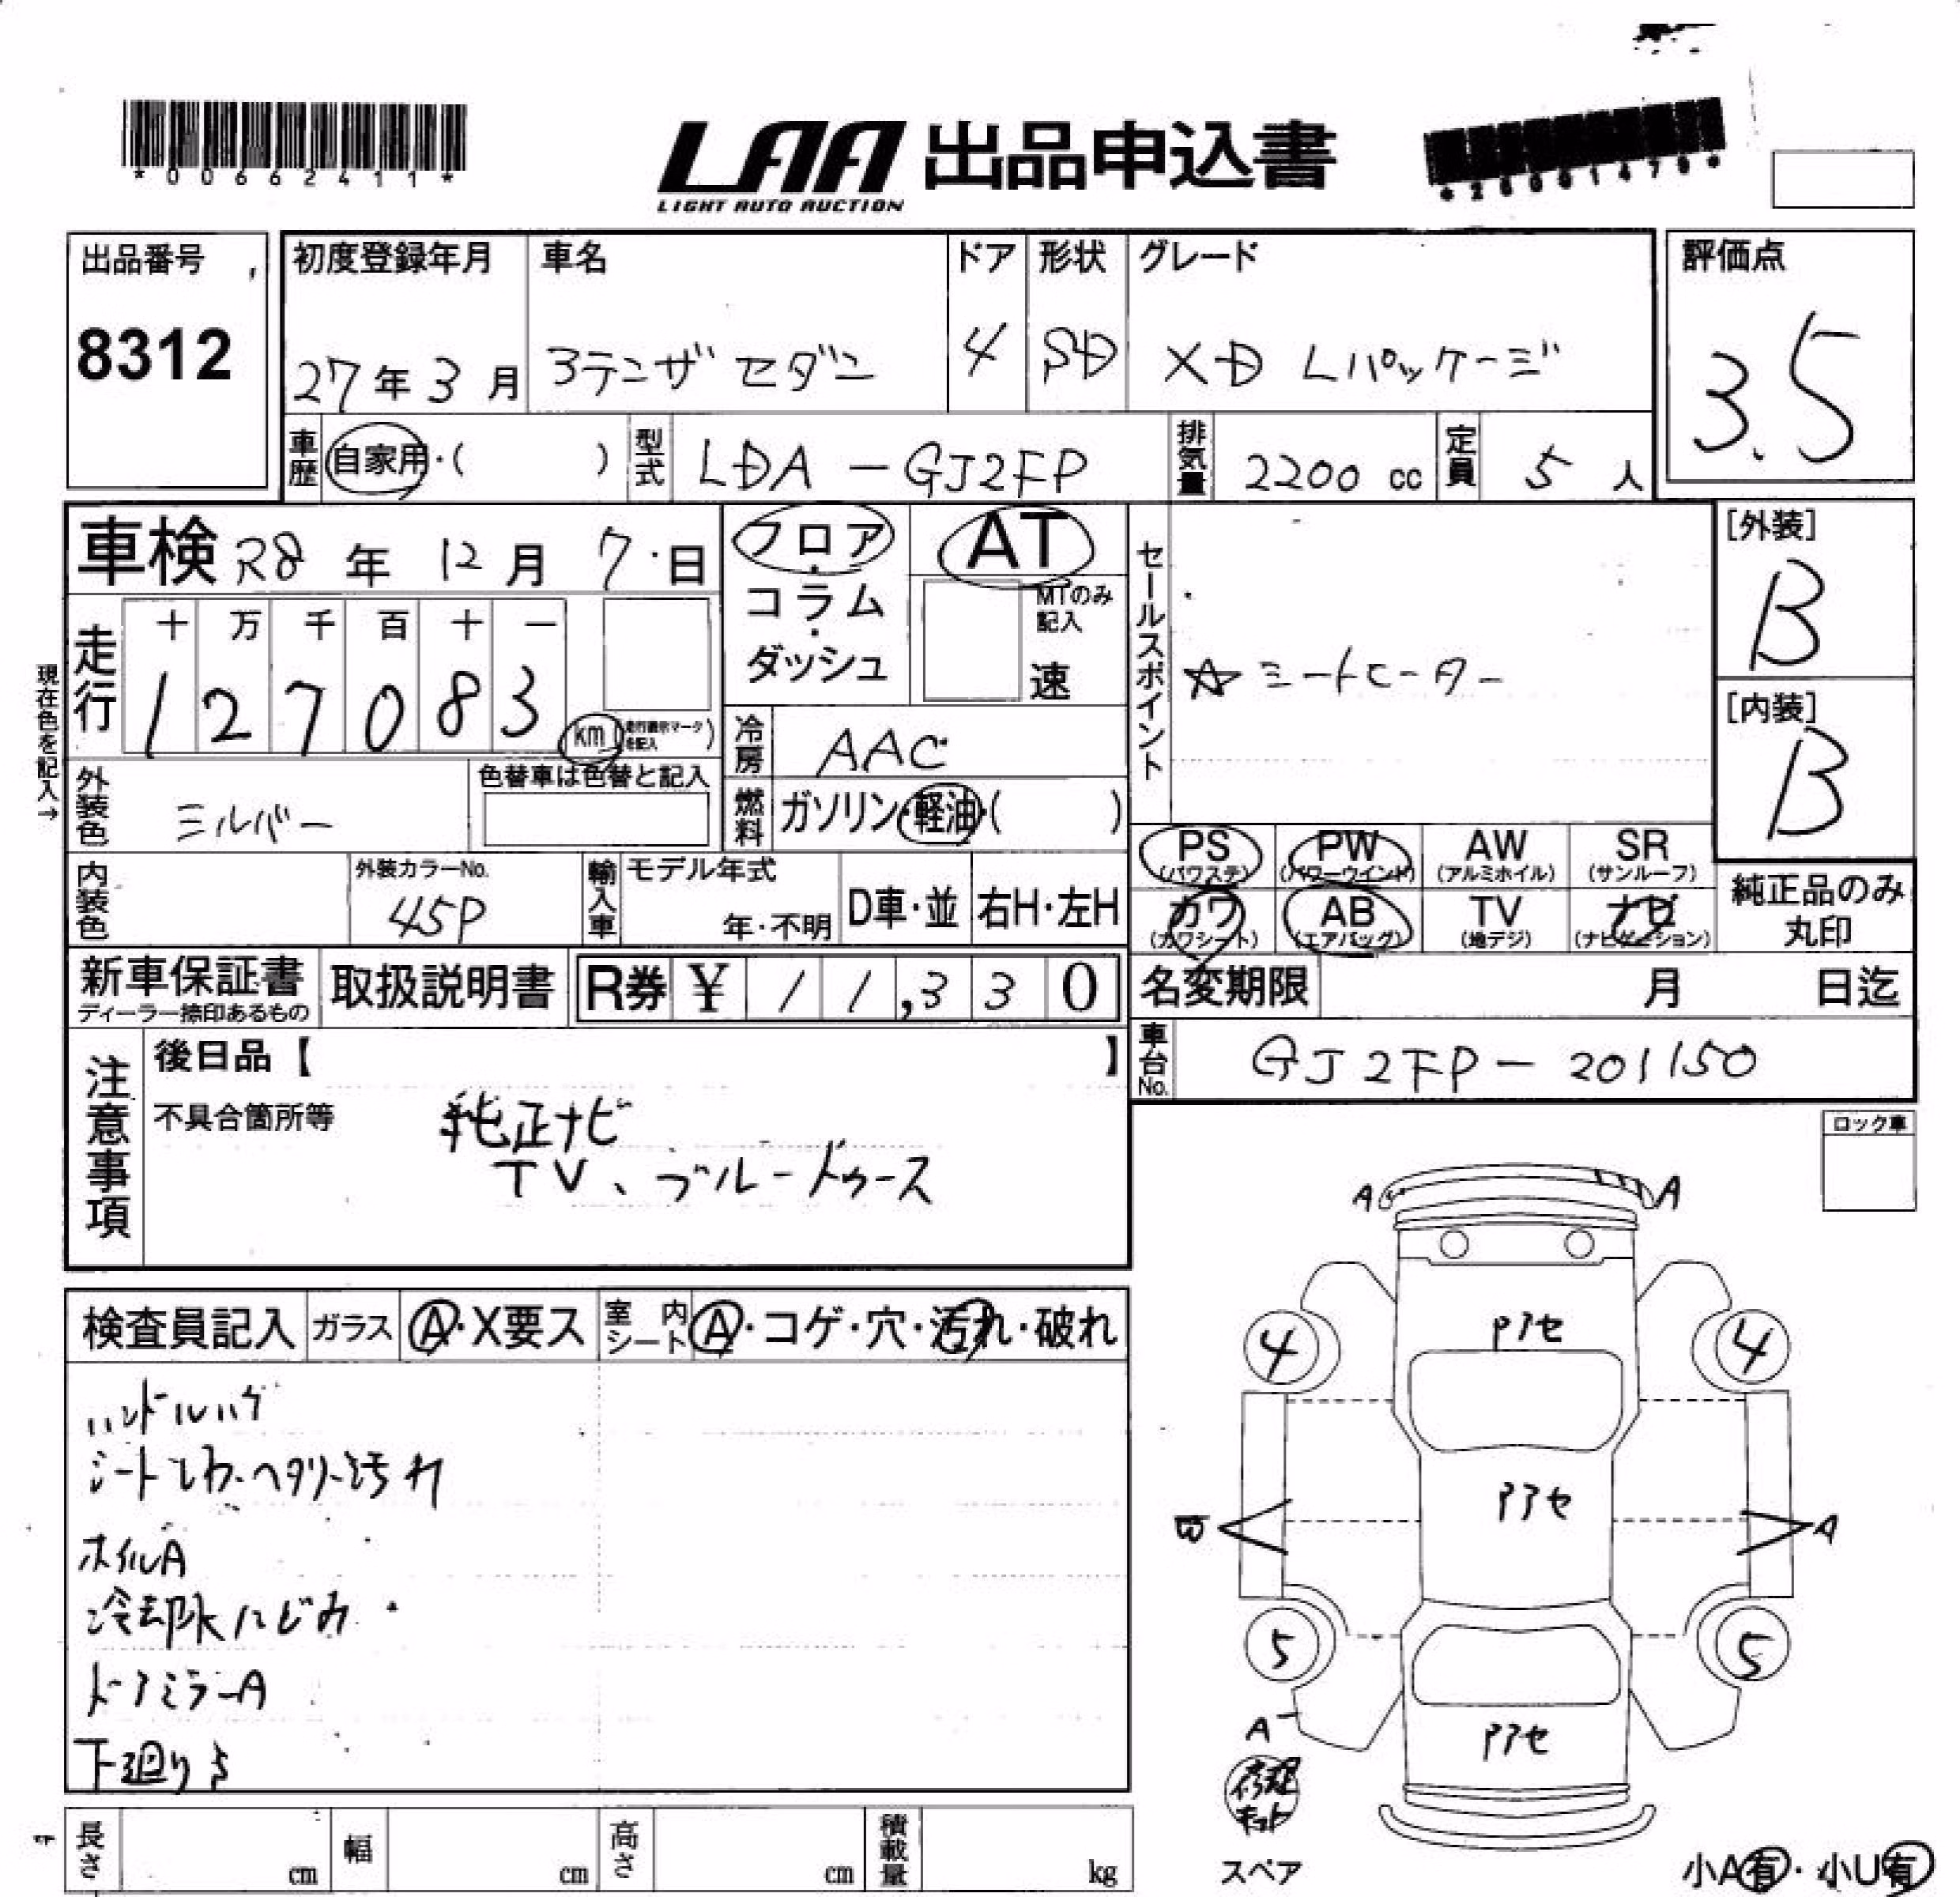 *00662411*
LAA 出品申込書
LIGHT AUTO AUCTION
出品番号
8312
初度登録年月
27年3月
車名
アテンザ セダン
ドア
4
形状
SD
グレード
XD Lパッケージ
評価点
3.5
車歴
自家用・( )
型式
LDA-GJ2FP
排気量
2200 cc
定員
5人
車検 R8年12月7日
フロア・コラム・ダッシュ
AT
MTのみ記入
速
セールスポイント
☆シートヒーター
[外装]
B
[内装]
B
現在色を記入→
走行
十 万 千 百 十 一
1 2 7 0 8 3
km
(走行表示マークを記入)
冷房
AAC
燃料
ガソリン・軽油・( )
外装色
シルバー
色替車は色替と記入
内装色
外装カラーNo.
45P
輸入車
モデル年式
年・不明
D車・並
右H・左H
PS (パワステ)
PW (パワーウインド)
AW (アルミホイル)
SR (サンルーフ)
カワ (カワシート)
AB (エアバッグ)
TV (地デジ)
ナビ (ナビゲーション)
純正品のみ丸印
新車保証書
ディーラー捺印あるもの
取扱説明書
R券 ¥ 11,330
名変期限 月 日迄
車台No.
GJ2FP-201150
注意事項
後日品【 】
不具合箇所等
純正ナビ
TV、ブルートゥース
ロック車
検査員記入
ガラス
A・X要ス
室内シート
A・コゲ・穴・汚れ・破れ
ハンドルハゲ
シートシワ・ヘタリ・汚れ
ホイルA
冷却水にじみ
ドアミラーA
下廻りS
A
A
アセ
4
4
アセ
B
A
5
5
A
アセ
修理キット
スペア
小A有・小U有
長さ cm
幅 cm
高さ cm
積載量 kg